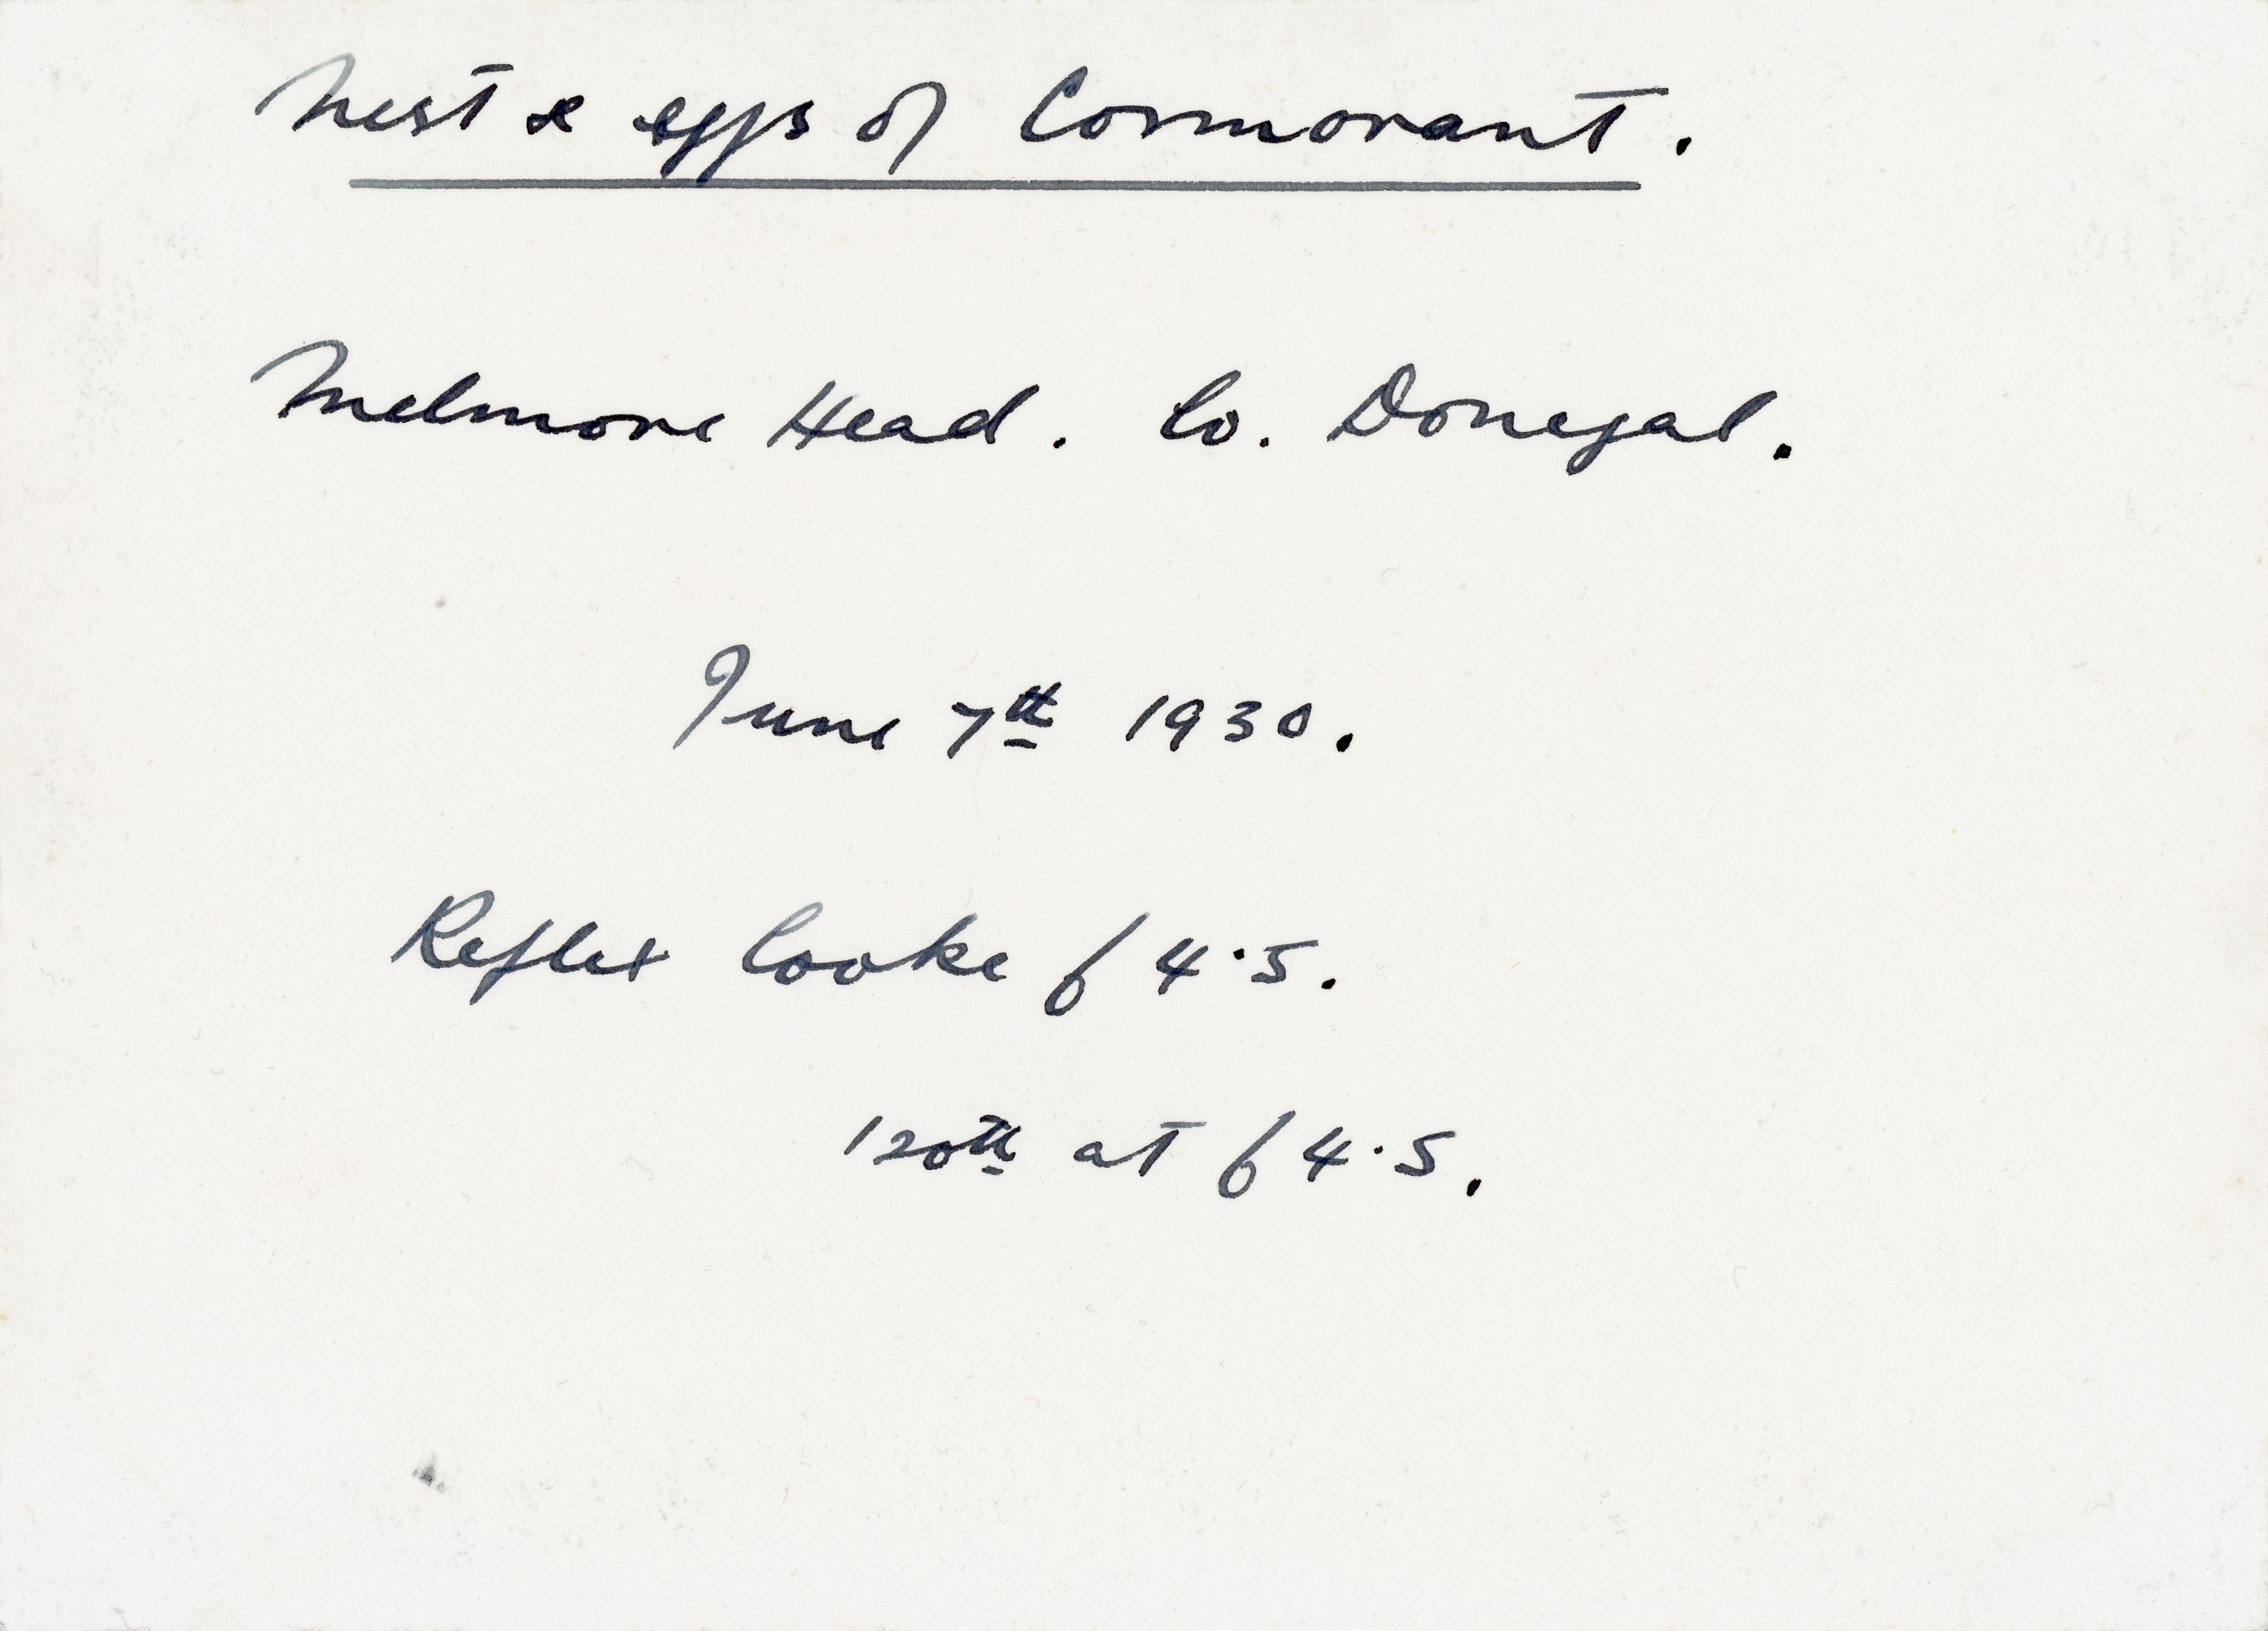 Nest & eggs of Cormorant.
Melmore Head. Co. Donegal.
June 7th 1930.
Reflex Cooke f 4·5.
120th at f 4·5.